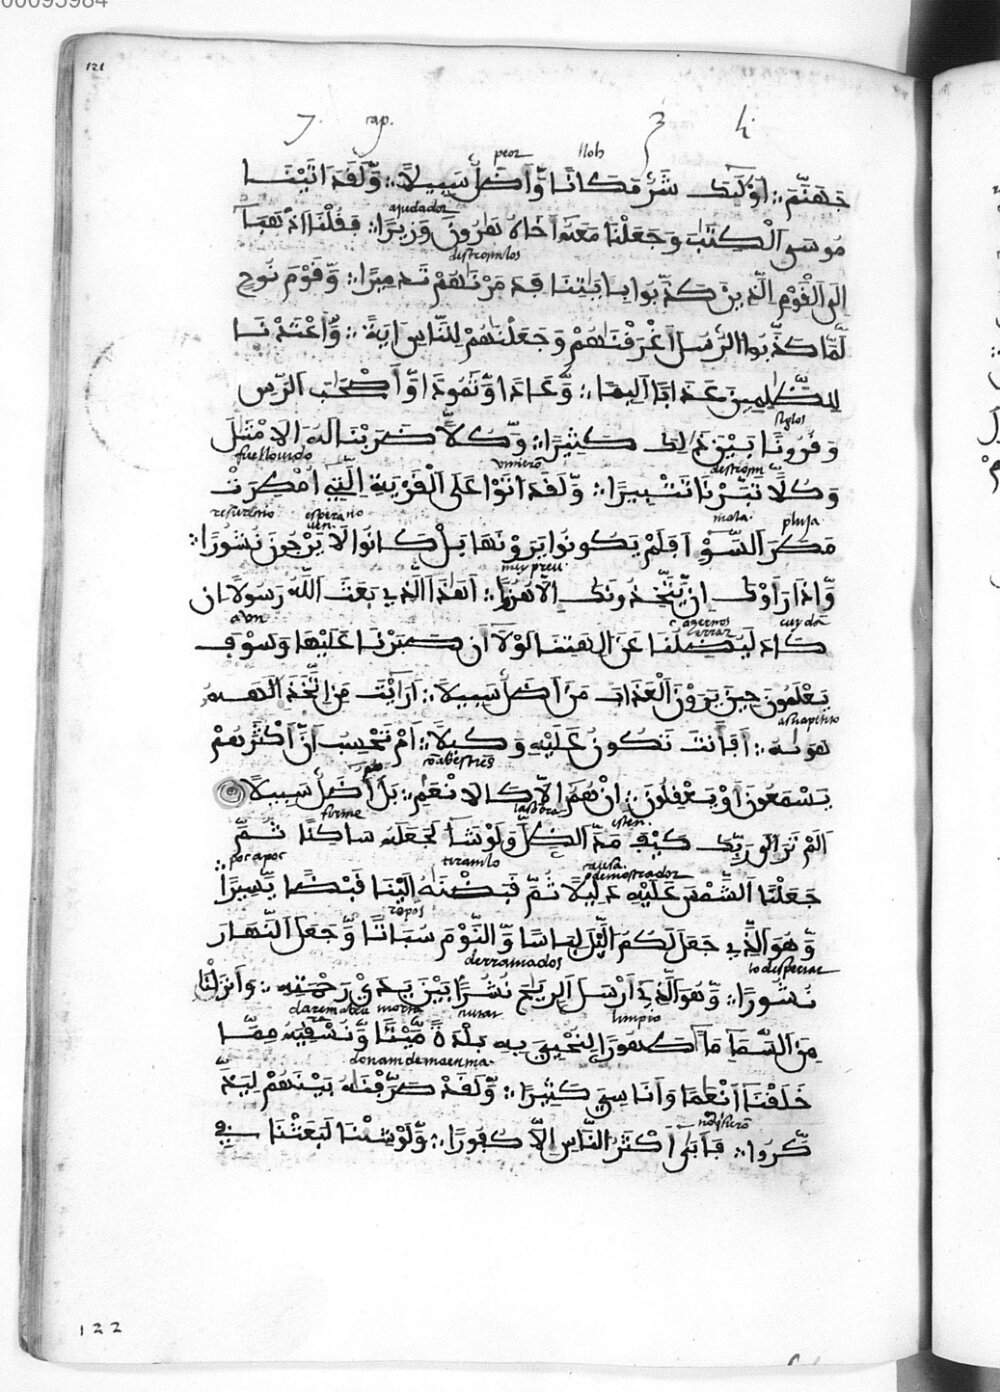 00095984
121
7. cap. 3 h.
peor lloh
جَهَنَّمَ أُوْلَئِكَ شَرٌّ مَّكَانًا وَّأَضَلُّ سَبِيلاً وَّلَقَدَ اتَيْنَا
ajudador
مُوسَى الْكِتَٰبَ وَجَعَلْنَا مَعَهُ أَخَاهُ هَٰرُونَ وَزِيرًا فَقُلْنَا اذْهَبَا
destroimlos
إِلَى الْقَوْمِ الَّذِينَ كَذَّبُوا بِـَٔايَٰتِنَا فَدَمَّرْنَٰهُمْ تَدْمِيرًا وَّقَوْمَ نُوحٍ
لَّمَّا كَذَّبُوا الرُّسُلَ أَغْرَقْنَٰهُمْ وَجَعَلْنَٰهُمْ لِلنَّاسِ ءَايَةً وَّأَعْتَدْنَا
لِلظَّٰلِمِينَ عَذَابًا أَلِيمًا وَّعَادًا وَّثَمُودًا وَّأَصْحَٰبَ الرَّسِّ
siglos
وَقُرُونًا بَيْنَ ذَٰلِكَ كَثِيرًا وَّكُلاًّ ضَرَبْنَا لَهُ الَامْثَٰلَ
fue llovido viniero destroim
وَكُلاًّ تَبَّرْنَا تَتْبِيرًا وَّلَقَدَ اتَوْا عَلَى الْقَرْيَةِ الَّتِي أُمْطِرَتْ
resurectio esperavan mala pluja
مَطَرَ السَّوْءِ أَفَلَمْ يَكُونُوا يَرَوْنَهَا بَلْ كَانُوا لَا يَرْجُونَ نُشُورًا
وَّإِذَا رَأَوْكَ إِنْ يَّتَّخِذُونَكَ إِلَّا هُزُوًا أَهَٰذَا الَّذِي بَعَثَ اللَّهُ رَسُولاً إِن
avn errar cuyda
كَادَ لَيُضِلُّنَا عَنَ الِهَتِنَا لَوْلَا أَن صَبَرْنَا عَلَيْهَا وَسَوْفَ
يَعْلَمُونَ حِينَ يَرَوْنَ الْعَذَابَ مَنَ أَضَلُّ سَبِيلاً أَرَايْتَ مَنِ اتَّخَذَ إِلَٰهَهُ
a su apitito
هَوَىٰهُ أَفَأَنتَ تَكُونُ عَلَيْهِ وَكِيلاً أَمْ تَحْسِبُ أَنَّ أَكْثَرَهُمْ
besties
يَسْمَعُونَ أَوْ يَعْقِلُونَ إِنْ هُمُ إِلَّا كَالَانْعَٰمِ بَلْ هُمُ أَضَلُّ سَبِيلاً
firme la sobra esten
أَلَمْ تَرَ إِلَىٰ رَبِّكَ كَيْفَ مَدَّ الظِّلَّ وَلَوْ شَاءَ لَجَعَلَهُ سَاكِنًا ثُمَّ
poc a poc tiramlo causa demostrador
جَعَلْنَا الشَّمْسَ عَلَيْهِ دَلِيلاً ثُمَّ قَبَضْنَٰهُ إِلَيْنَا قَبْضًا يَّسِيرًا
repos
وَّهُوَ الَّذِي جَعَلَ لَكُمُ الَّيْلَ لِبَاسًا وَّالنَّوْمَ سُبَاتًا وَّجَعَلَ النَّهَارَ
derramados to despertar
نُشُورًا وَّهُوَ الَّذِي أَرْسَلَ الرِّيَٰحَ نُشُرًا بَيْنَ يَدَيْ رَحْمَتِهِ وَأَنزَلْنَا
morta limpio
مِنَ السَّمَاءِ مَاءً طَهُورًا لِنُحْيِيَ بِهِ بَلْدَةً مَّيْتًا وَّنُسْقِيَهُ مِمَّا
خَلَقْنَا أَنْعَٰمًا وَأَنَاسِيَّ كَثِيرًا وَّلَقَدْ صَرَّفْنَٰهُ بَيْنَهُمْ لِيَذَّ
كَّرُوا فَأَبَىٰ أَكْثَرُ النَّاسِ إِلَّا كُفُورًا وَّلَوْ شِئْنَا لَبَعَثْنَا فِي
122